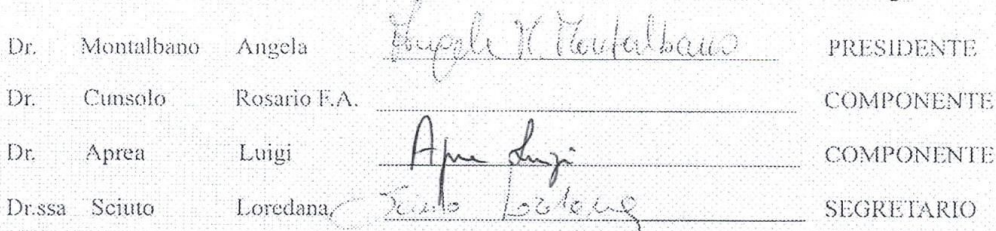 Dr. Montalbano Angela Angela M Montalbano PRESIDENTE
Dr. Cunsolo Rosario F.A. COMPONENTE
Dr. Aprea Luigi Aprea Luigi COMPONENTE
Dr.ssa Sciuto Loredana Sciuto Loredana SEGRETARIO